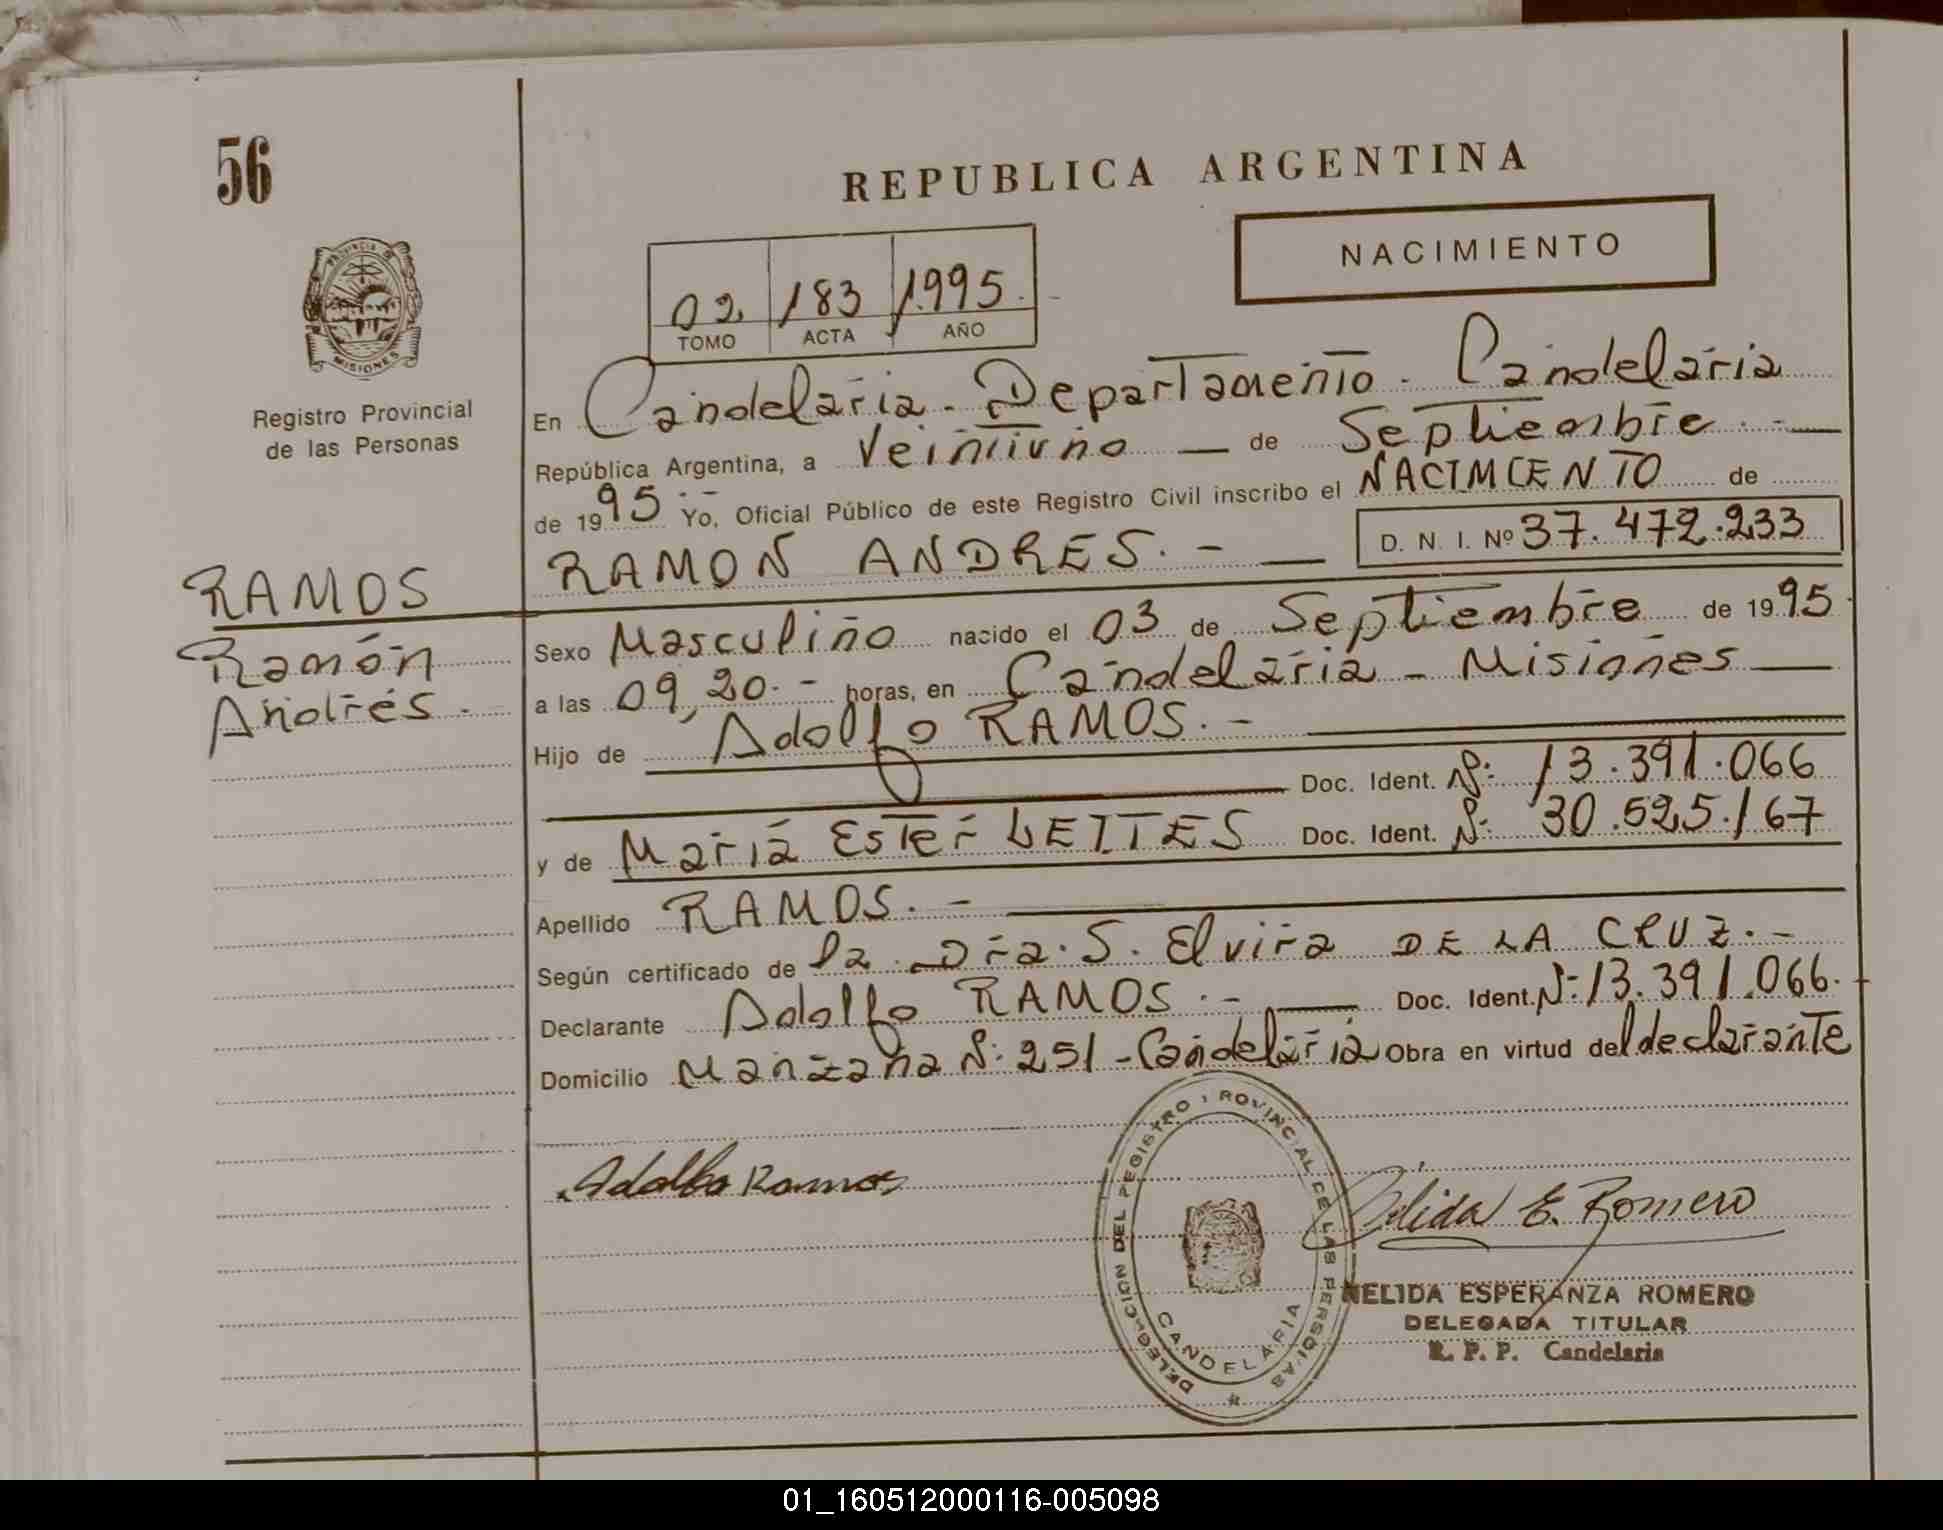 56
REPUBLICA ARGENTINA
NACIMIENTO
02. 183 1.995.
TOMO ACTA AÑO
PROVINCIA DE
MISIONES
Registro Provincial
de las Personas
En Candelaria - Departamento - Candelaria
República Argentina, a Veintiuno de Septiembre . -
de 1995 . - Yo, Oficial Público de este Registro Civil inscribo el NACIMIENTO de
RAMON ANDRES . - D. N. I. Nº 37.472.233
RAMOS
Ramón
Andrés -
Sexo Masculino nacido el 03 de Septiembre de 1995
a las 09,20 . - horas, en Candelaria - Misiones
Hijo de Adolfo RAMOS . -
Doc. Ident. Nº: 13.391.066
y de María Ester LEITES Doc. Ident. Nº: 30.525.167
Apellido RAMOS . -
Según certificado de la Dra. S. Elvira DE LA CRUZ . -
Declarante Adolfo RAMOS . - Doc. Ident. Nº: 13.391.066.
Domicilio Manzana Nº: 251 - Candelaria Obra en virtud del declarante
Adolfo Ramos
DELEGACION DEL REGISTRO PROVINCIAL DE LAS PERSONAS
CANDELARIA
Nélida E. Romero
NELIDA ESPERANZA ROMERO
DELEGADA TITULAR
R. P. P. Candelaria
01_160512000116-005098